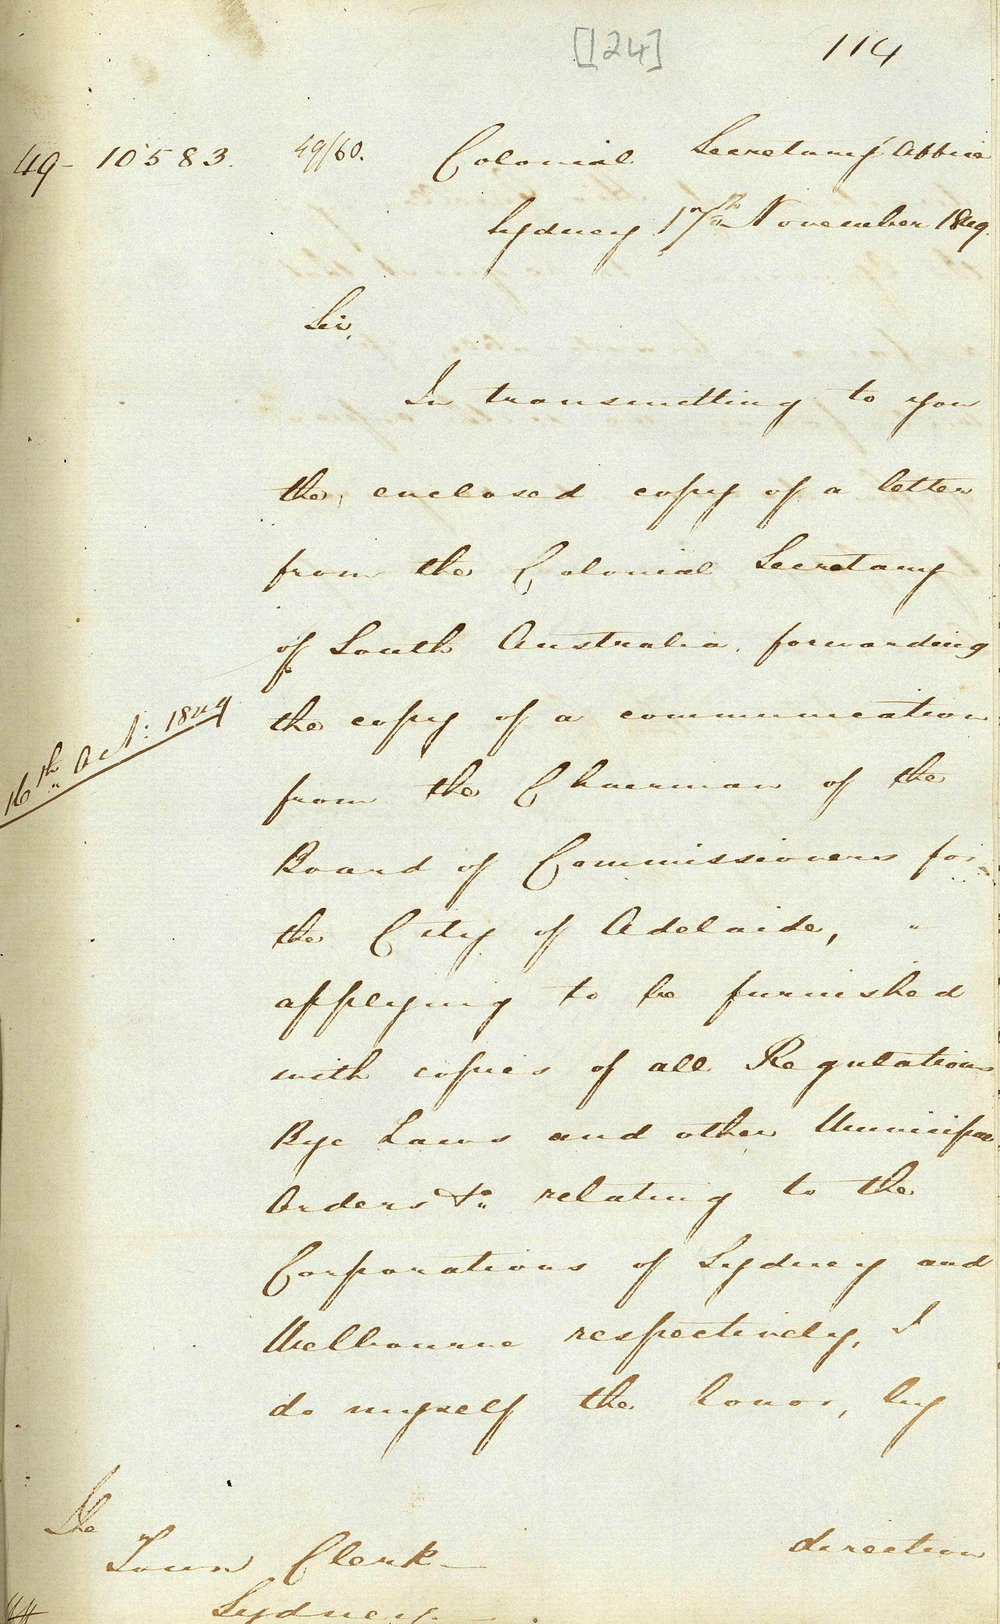 [124] 114
49-10583. 49/60. Colonial Secretary's Office
Sydney 17th November 1849.
Sir,
In transmitting to you
the enclosed copy of a letter
from the Colonial Secretary
of South Australia, forwarding
16th Oct: 1849
the copy of a communication
from the Chairman of the
Board of Commissioners for
the City of Adelaide, "
applying to be furnished
with copies of all Regulations
Bye Laws and other Municipal
Orders &c relating to the
Corporations of Sydney and
Melbourne respectively, I
do myself the honor, by
direction
The
Town Clerk
Sydney.